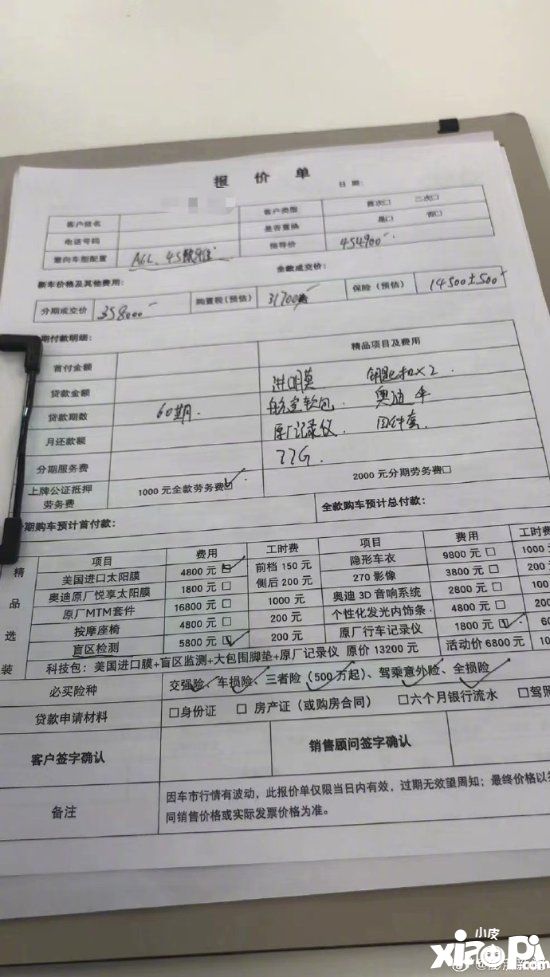 报价单
日期：
客户姓名 客户类型 首次□ 二次□
电话号码 是否置换 是□ 否□
意向车型配置 A6L、45臻选 指导价 454900
新车价格及其他费用： 全款成交价：
分期成交价 358000 购置税(预估) 31700 保险（预估） 14500±500
期付款明细：
首付金额 精品项目及费用
贷款金额 钥匙扣×2
贷款期数 60期. 航空软包. 奥迪伞
月还款额 原厂记录仪 四件套
分期服务费 77G
上牌公证抵押劳务费 1000元全款劳务费☑ 2000元分期劳务费□
分期购车预计首付款： 全款购车预计总付款：
精品选装
项目 费用 工时费 项目 费用 工时费
美国进口太阳膜 4800元☑ 前档150元 隐形车衣 9800元□ 1000
奥迪原厂悦享太阳膜 1800元□ 侧后200元 270影像 3800元□ 200元
原厂MTM套件 16800元□ 1000元 奥迪3D音响系统 2800元□ 100元
按摩座椅 4800元□ 200元 个性化发光内饰条 4800元□ 200元
盲区检测 5800元☑ 200元 原厂行车记录仪 1800元☑ 100元
科技包：美国进口膜+盲区监测+大包围脚垫+原厂记录仪 原价13200元 活动价6800元
必买险种 交强险、车损险、三者险（500万起）、驾乘意外险、全损险
贷款申请材料 □身份证 □房产证（或购房合同） □六个月银行流水 □驾照
客户签字确认 销售顾问签字确认
备注 因车市行情有波动，此报价单仅限当日内有效，过期无效望周知；最终价格以
同销售价格或实际发票价格为准。
小皮
xiaopi